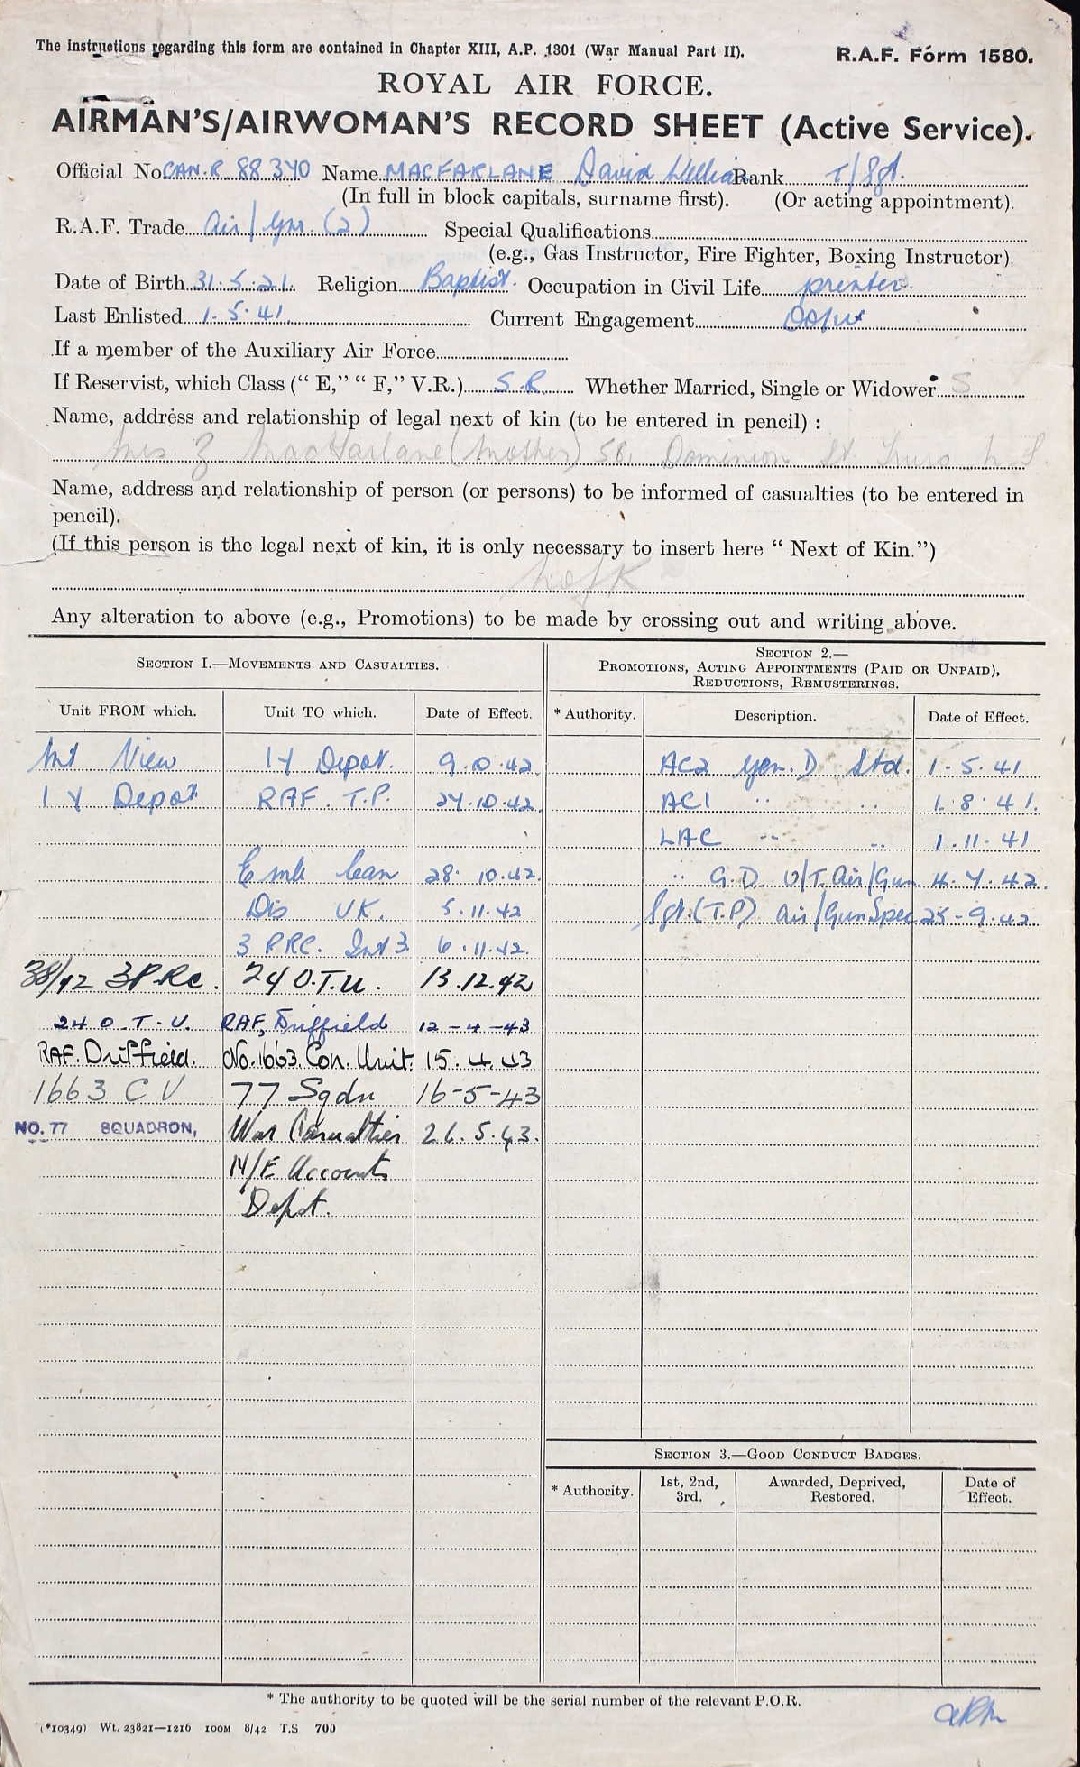 The Instructions regarding this form are contained in Chapter XIII, A.P. 1301 (War Manual Part II).
R.A.F. Form 1580.
ROYAL AIR FORCE.
AIRMAN'S/AIRWOMAN'S RECORD SHEET (Active Service).
Official No. CAN.R 88340 Name MACFARLANE David William Rank T/Sgt.
(In full in block capitals, surname first). (Or acting appointment).
R.A.F. Trade Air/Gnr. (2) Special Qualifications
(e.g., Gas Instructor, Fire Fighter, Boxing Instructor)
Date of Birth 31.5.21. Religion Baptist. Occupation in Civil Life printer
Last Enlisted 1.5.41. Current Engagement
If a member of the Auxiliary Air Force
If Reservist, which Class ("E," "F," V.R.) S.R. Whether Married, Single or Widower S
Name, address and relationship of legal next of kin (to be entered in pencil) :
Mrs Z MacFarlane (Mother) 56, Dominion St. Truro N S
Name, address and relationship of person (or persons) to be informed of casualties (to be entered in
pencil).
(If this person is the legal next of kin, it is only necessary to insert here " Next of Kin.")
N of K
Any alteration to above (e.g., Promotions) to be made by crossing out and writing above.
SECTION 1.—MOVEMENTS AND CASUALTIES.
Unit FROM which. Unit TO which. Date of Effect.
Mt View 1 Y Depot. 9.10.42
1 Y Depot RAF. T.P. 27.10.42.
Emb Can 28.10.42.
Dis UK. 5.11.42
3 PRC. 6.11.42.
38/42 3 P.R.C. 24 O.T.U. 13.12.42
24 O.T.U. RAF, Driffield 12-4-43
RAF. Driffield. No. 1663. Con. Unit. 15.4.43
1663 C U 77 Sqdn 16-5-43
NO. 77 SQUADRON, War Casualties 26.5.43.
N/E Accounts
Dept.
SECTION 2.—
PROMOTIONS, ACTING APPOINTMENTS (PAID OR UNPAID),
REDUCTIONS, REMUSTERINGS.
* Authority. Description. Date of Effect.
AC2 Gen. D Std. 1.5.41
AC1 " " 1.8.41.
LAC " " 1.11.41
" G.D U/T. Air/Gun 4.7.42.
Sgt. (T.P) Air/Gun Spec 25-9-42
SECTION 3.—GOOD CONDUCT BADGES.
* Authority. 1st, 2nd, 3rd. Awarded, Deprived, Restored. Date of Effect.
* The authority to be quoted will be the serial number of the relevant P.O.R.
(*10349) Wt. 23821—1210 100M 8/42 T.S. 700